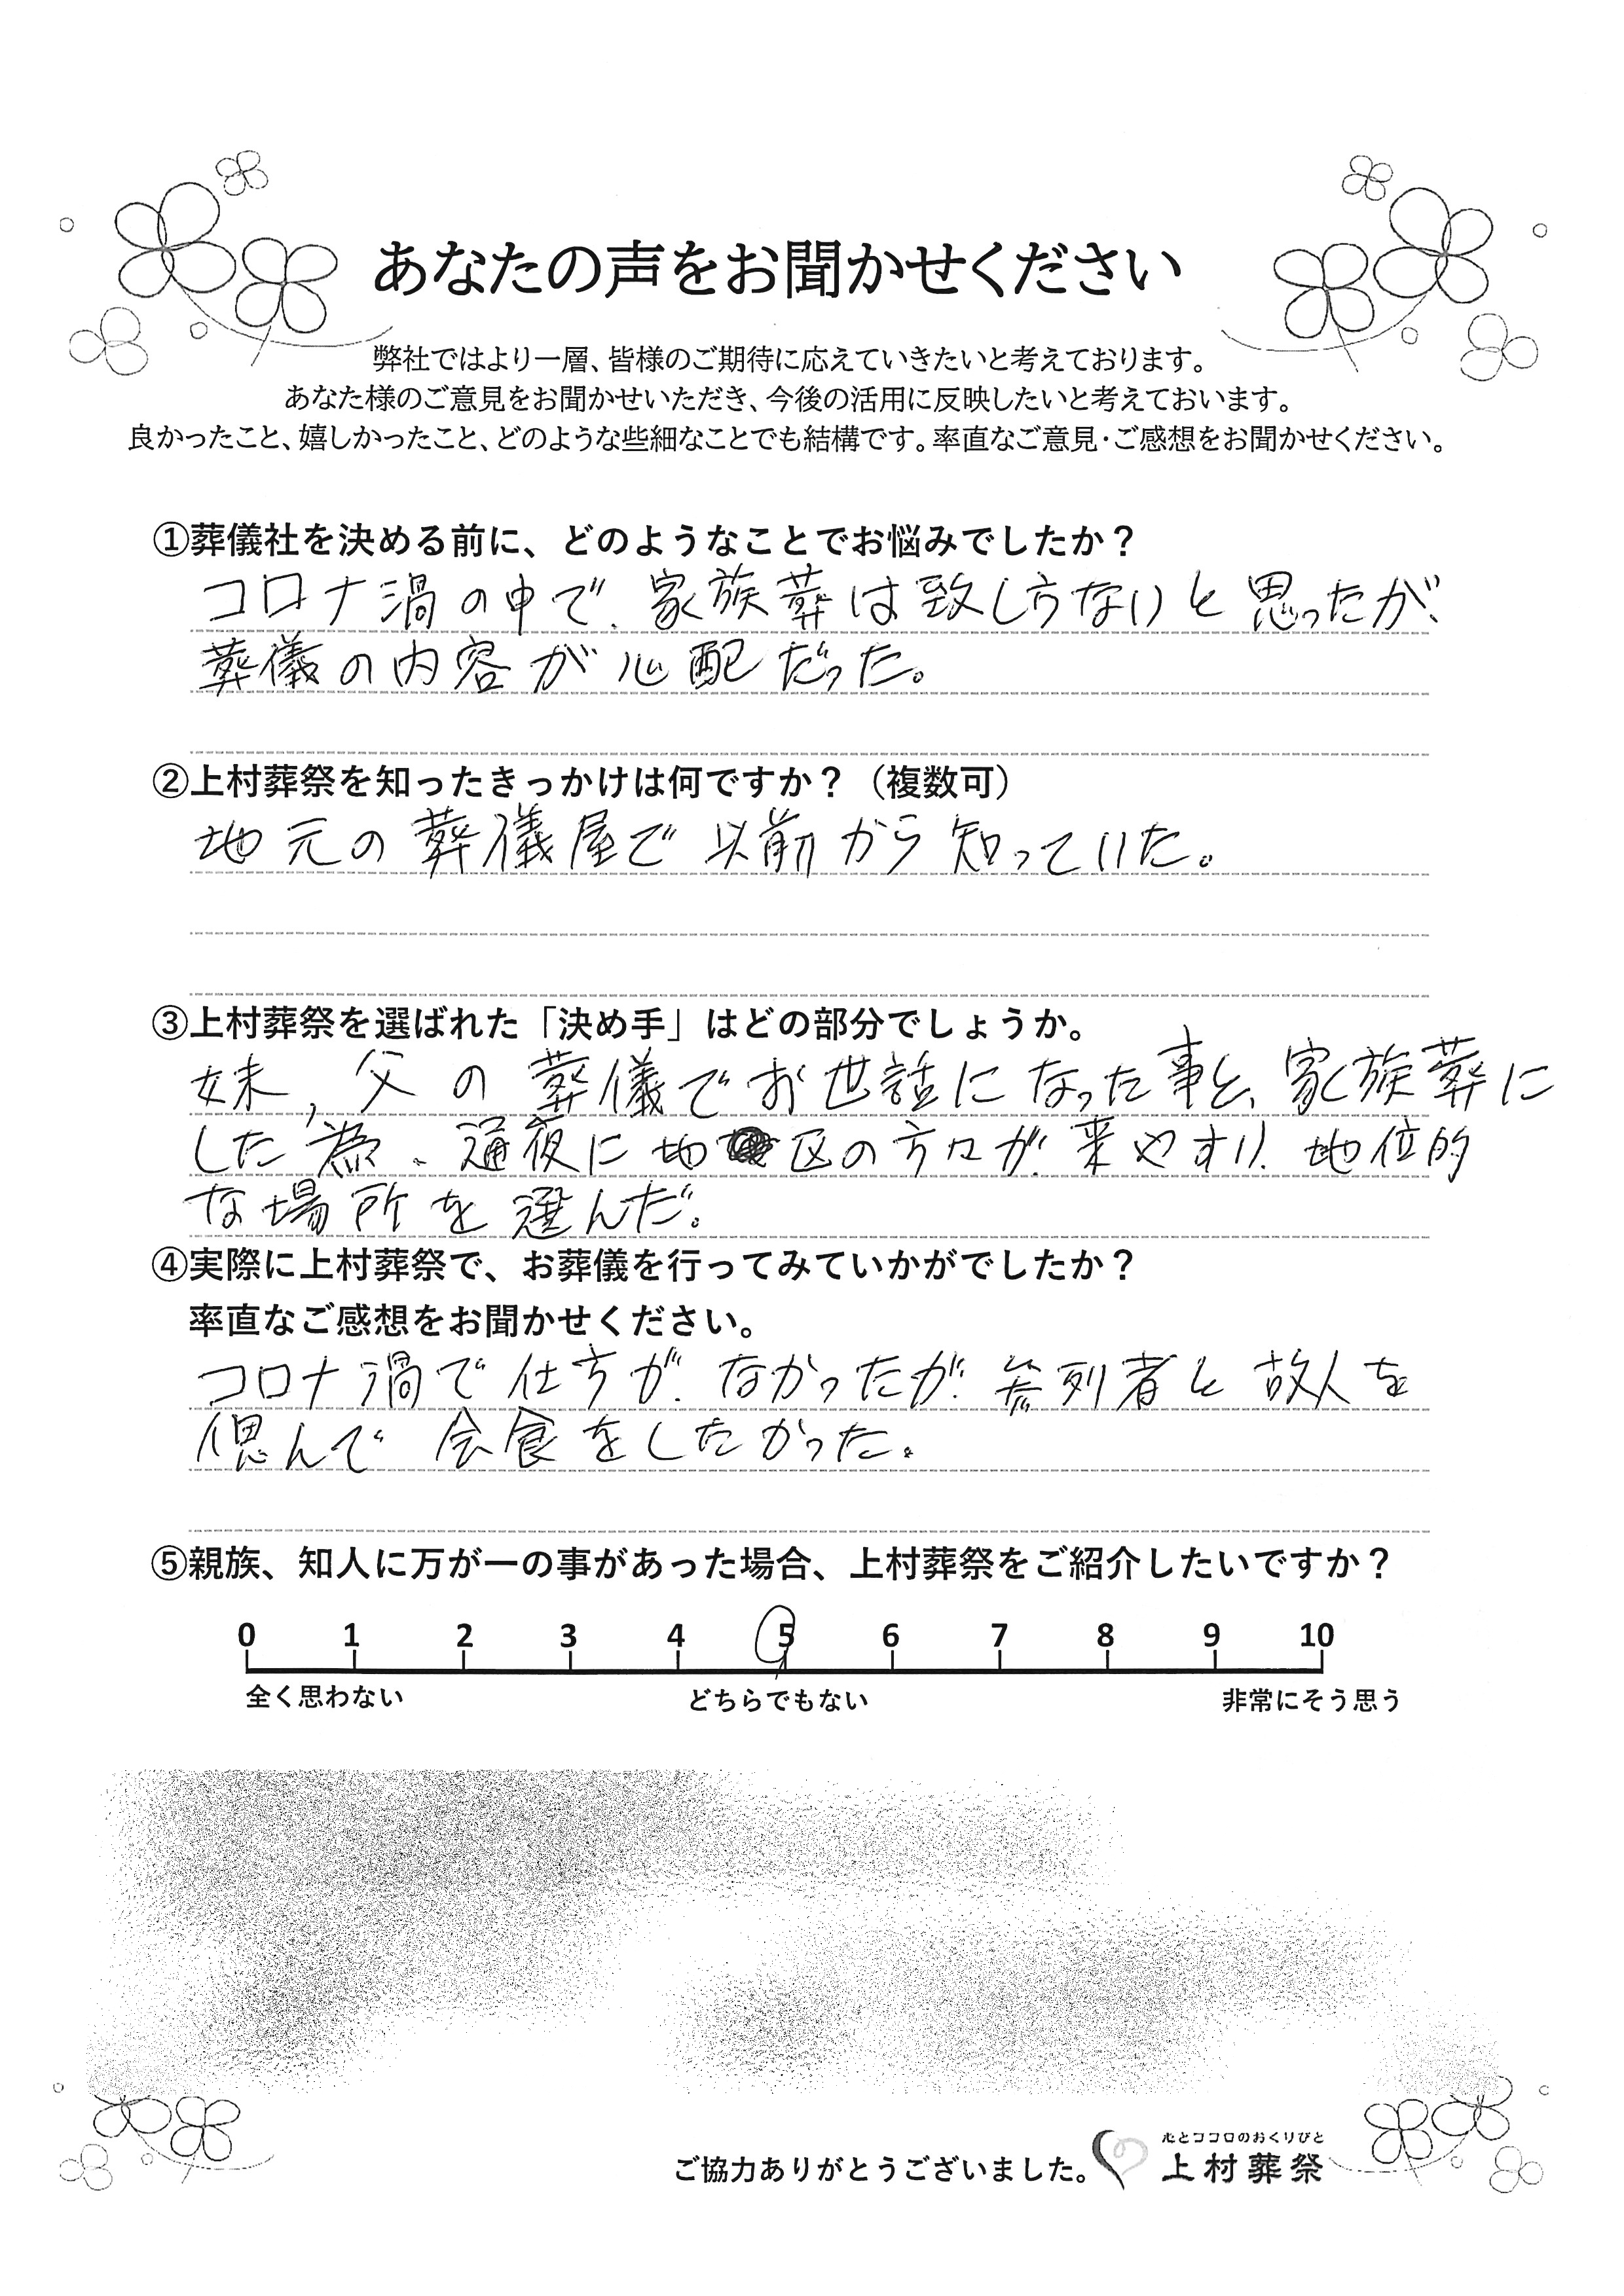 あなたの声をお聞かせください
弊社ではより一層、皆様のご期待に応えていきたいと考えております。
あなた様のご意見をお聞かせいただき、今後の活用に反映したいと考えておいます。
良かったこと、嬉しかったこと、どのような些細なことでも結構です。率直なご意見・ご感想をお聞かせください。
①葬儀社を決める前に、どのようなことでお悩みでしたか？
コロナ渦の中で、家族葬は致し方ないと思ったが、
葬儀の内容が心配だった。
②上村葬祭を知ったきっかけは何ですか？（複数可）
地元の葬儀屋で以前から知っていた。
③上村葬祭を選ばれた「決め手」はどの部分でしょうか。
妹，父の葬儀でお世話になった事と、家族葬に
した為、通夜に地区の方々が来やすい地位的
な場所を選んだ。
④実際に上村葬祭で、お葬儀を行ってみていかがでしたか？
率直なご感想をお聞かせください。
コロナ渦で仕方がなかったが参列者と故人を
偲んで会食をしたかった。
⑤親族、知人に万が一の事があった場合、上村葬祭をご紹介したいですか？
0 1 2 3 4 5 6 7 8 9 10
全く思わない どちらでもない 非常にそう思う
心とココロのおくりびと
ご協力ありがとうございました。 上村葬祭